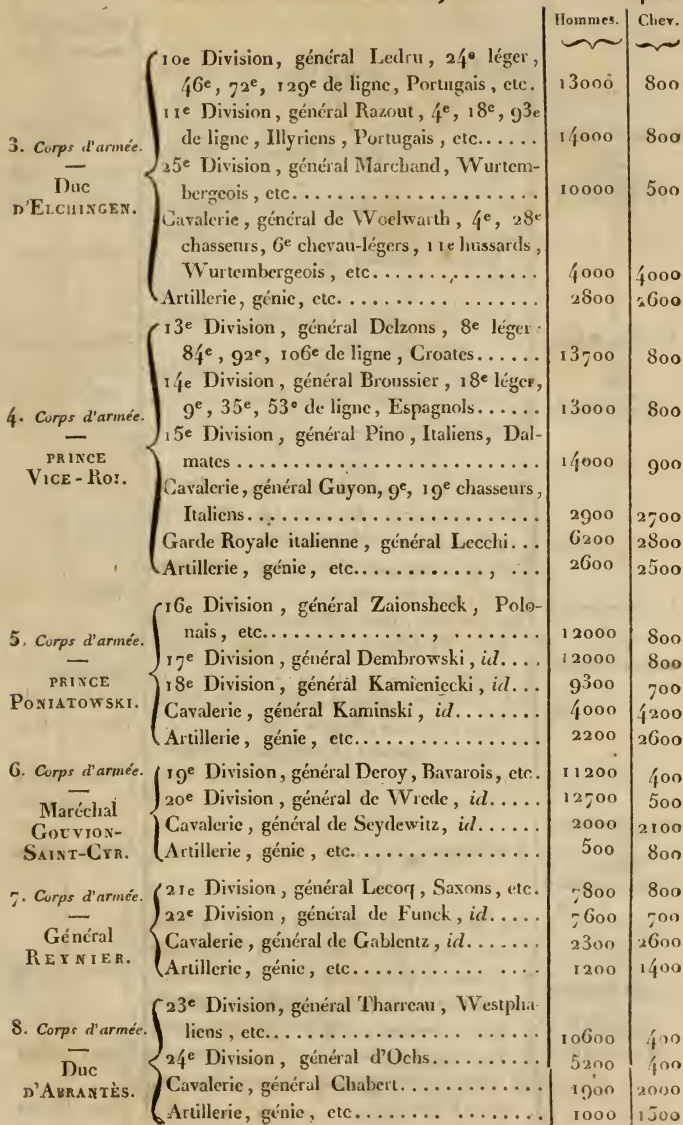 Hommes. Chev.
3. Corps d'armée.
—
Duc
D'ELCHINGEN.
10e Division, général Ledru, 24e léger,
46e, 72e, 129e de ligne, Portugais, etc. 13000 800
11e Division, général Razout, 4e, 18e, 93e
de ligne, Illyriens, Portugais, etc...... 14000 800
25e Division, général Marchand, Wurtem-
bergeois, etc..................... 10000 500
Cavalerie, général de Woelwarth, 4e, 28e
chasseurs, 6e chevau-légers, 11e hussards,
Wurtembergeois, etc............... 4000 4000
Artillerie, génie, etc................. 2800 2600
4. Corps d'armée.
—
PRINCE
VICE-ROI.
13e Division, général Delzons, 8e léger
84e, 92e, 106e de ligne, Croates...... 13700 800
14e Division, général Broussier, 18e léger,
9e, 35e, 53e de ligne, Espagnols...... 13000 800
15e Division, général Pino, Italiens, Dal-
mates .......................... 14000 900
Cavalerie, général Guyon, 9e, 19e chasseurs,
Italiens......................... 2900 2700
Garde Royale italienne, général Lecchi... 6200 2800
Artillerie, génie, etc............, ... 2600 2500
5. Corps d'armée.
—
PRINCE
PONIATOWSKI.
16e Division, général Zaionsheck, Polo-
nais, etc................, ........ 12000 800
17e Division, général Dembrowski, id.... 12000 800
18e Division, général Kamieniecki, id... 9300 700
Cavalerie, général Kaminski, id........ 4000 4200
Artillerie, génie, etc................. 2200 2600
6. Corps d'armée.
—
Maréchal
GOUVION-
SAINT-CYR.
19e Division, général Deroy, Bavarois, etc. 11200 400
20e Division, général de Wrede, id..... 12700 500
Cavalerie, général de Seydewitz, id...... 2000 2100
Artillerie, génie, etc................. 500 800
7. Corps d'armée.
—
Général
REYNIER.
21e Division, général Lecoq, Saxons, etc. 7800 800
22e Division, général de Funck, id..... 7600 700
Cavalerie, général de Gablentz, id....... 2300 2600
Artillerie, génie, etc............ .... 1200 1400
8. Corps d'armée.
—
Duc
D'ABRANTÈS.
23e Division, général Tharreau, Westpha-
liens, etc....................... 10600 400
24e Division, général d'Ochs.......... 5200 400
Cavalerie, général Chabert............ 1900 2000
Artillerie, génie, etc......... ........ 1000 1500